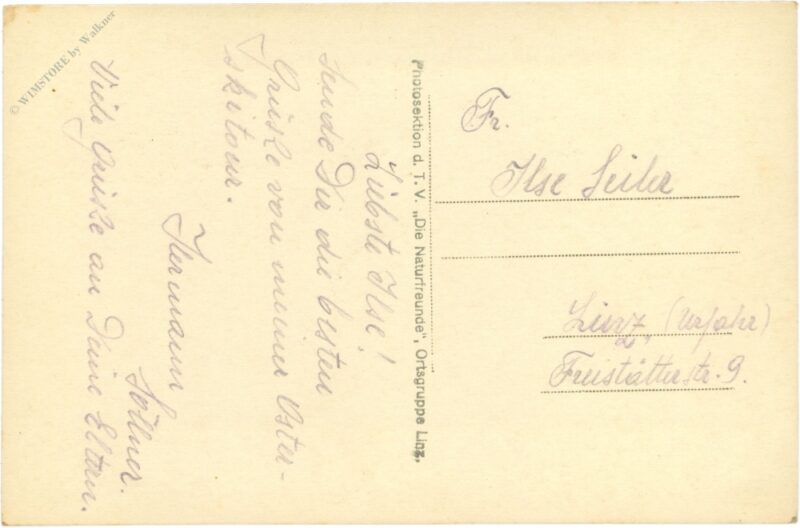 Liebste Ilse!
sende Dir die besten
Grüße von meiner Oster-
skitour.
Hermann
Söllner.
Viele Grüße an Deine Eltern.
Photosektion d. T. V. „Die Naturfreunde", Ortsgruppe Linz,
Fr.
Ilse Seiler
Linz, (Urfahr)
Freistätterstr. 9.
© WIMSTORE by Walkner